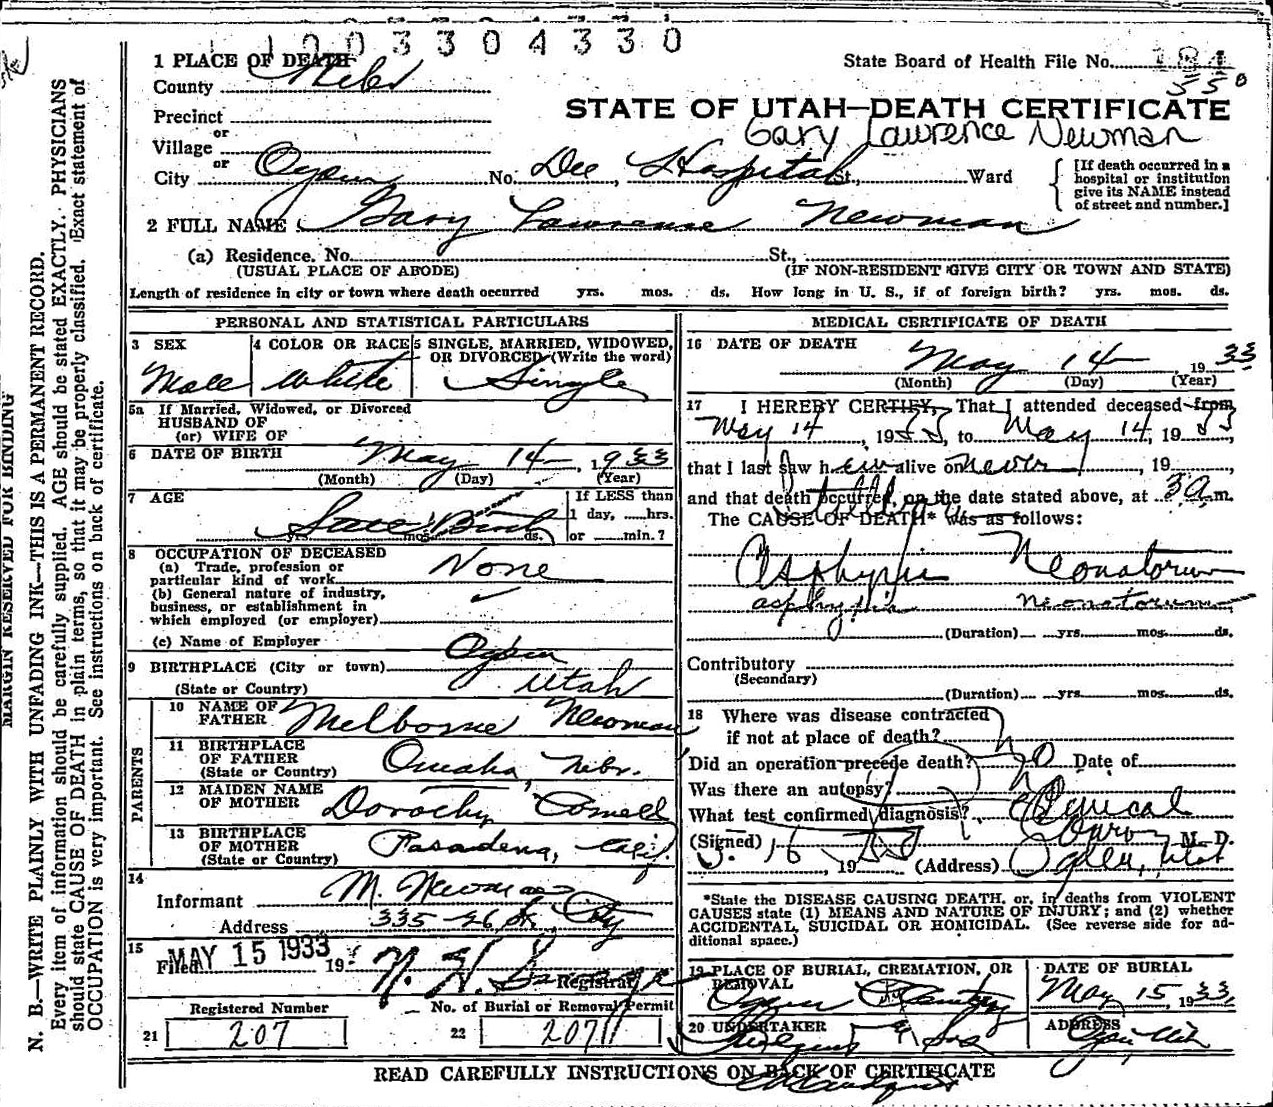 1003304330
1 PLACE OF DEATH
State Board of Health File No. 184
550
County
STATE OF UTAH—DEATH CERTIFICATE
Precinct
Gary Lawrence Newman
or
Village
or
City Ogden No. Dee Hospital St., Ward
[If death occurred in a
hospital or institution
give its NAME instead
of street and number.]
2 FULL NAME Gary Lawrence Newman
(a) Residence. No. St.,
(USUAL PLACE OF ABODE) (IF NON-RESIDENT GIVE CITY OR TOWN AND STATE)
Length of residence in city or town where death occurred yrs. mos. ds. How long in U. S., if of foreign birth? yrs. mos. ds.
PERSONAL AND STATISTICAL PARTICULARS
3 SEX
Male
4 COLOR OR RACE
White
5 SINGLE, MARRIED, WIDOWED,
OR DIVORCED (Write the word)
Single
5a If Married, Widowed, or Divorced
HUSBAND OF
(or) WIFE OF
6 DATE OF BIRTH May 14, 1933
(Month) (Day) (Year)
7 AGE
If LESS than
1 day, hrs.
or min.?
yrs. mos. ds.
Birth
8 OCCUPATION OF DECEASED
(a) Trade, profession or
particular kind of work None
(b) General nature of industry,
business, or establishment in
which employed (or employer)
(c) Name of Employer
9 BIRTHPLACE (City or town) Ogden
(State or Country) Utah
PARENTS
10 NAME OF
FATHER Melborne Newman
11 BIRTHPLACE
OF FATHER Omaha, Nebr.
(State or Country)
12 MAIDEN NAME
OF MOTHER Dorothy
13 BIRTHPLACE
OF MOTHER Pasadena, Calif.
(State or Country)
14
Informant M. Newman
Address 335 26 St. City
15
Filed MAY 15 1933 19
N. H. Registrar
Registered Number
21 207
No. of Burial or Removal Permit
22 207
MEDICAL CERTIFICATE OF DEATH
16 DATE OF DEATH
May 14, 1933
(Month) (Day) (Year)
17 I HEREBY CERTIFY, That I attended deceased from
May 14, 1933, to May 14, 1933,
that I last saw him alive on never, 19
and that death occurred, on the date stated above, at 3 a. m.
Stillborn
The CAUSE OF DEATH* was as follows:
Asphyxia Neonatorum
asphyxia neonatorum
(Duration) yrs. mos. ds.
Contributory
(Secondary)
(Duration) yrs. mos. ds.
18 Where was disease contracted
if not at place of death?
Did an operation precede death? no Date of
Was there an autopsy?
What test confirmed diagnosis? Clinical
(Signed) M. D.
5-16, 1933 (Address) Ogden, Utah
*State the DISEASE CAUSING DEATH, or, in deaths from VIOLENT
CAUSES state (1) MEANS AND NATURE OF INJURY; and (2) whether
ACCIDENTAL, SUICIDAL OR HOMICIDAL. (See reverse side for ad-
ditional space.)
19 PLACE OF BURIAL, CREMATION, OR
REMOVAL
Ogden City Cemetery
DATE OF BURIAL
May 15, 1933
20 UNDERTAKER
& Son
ADDRESS
Ogden, Utah
READ CAREFULLY INSTRUCTIONS ON BACK OF CERTIFICATE
MARGIN RESERVED FOR BINDING
N. B.—WRITE PLAINLY WITH UNFADING INK—THIS IS A PERMANENT RECORD.
Every item of information should be carefully supplied. AGE should be stated EXACTLY. PHYSICIANS
should state CAUSE OF DEATH in plain terms, so that it may be properly classified. Exact statement of
OCCUPATION is very important. See instructions on back of certificate.